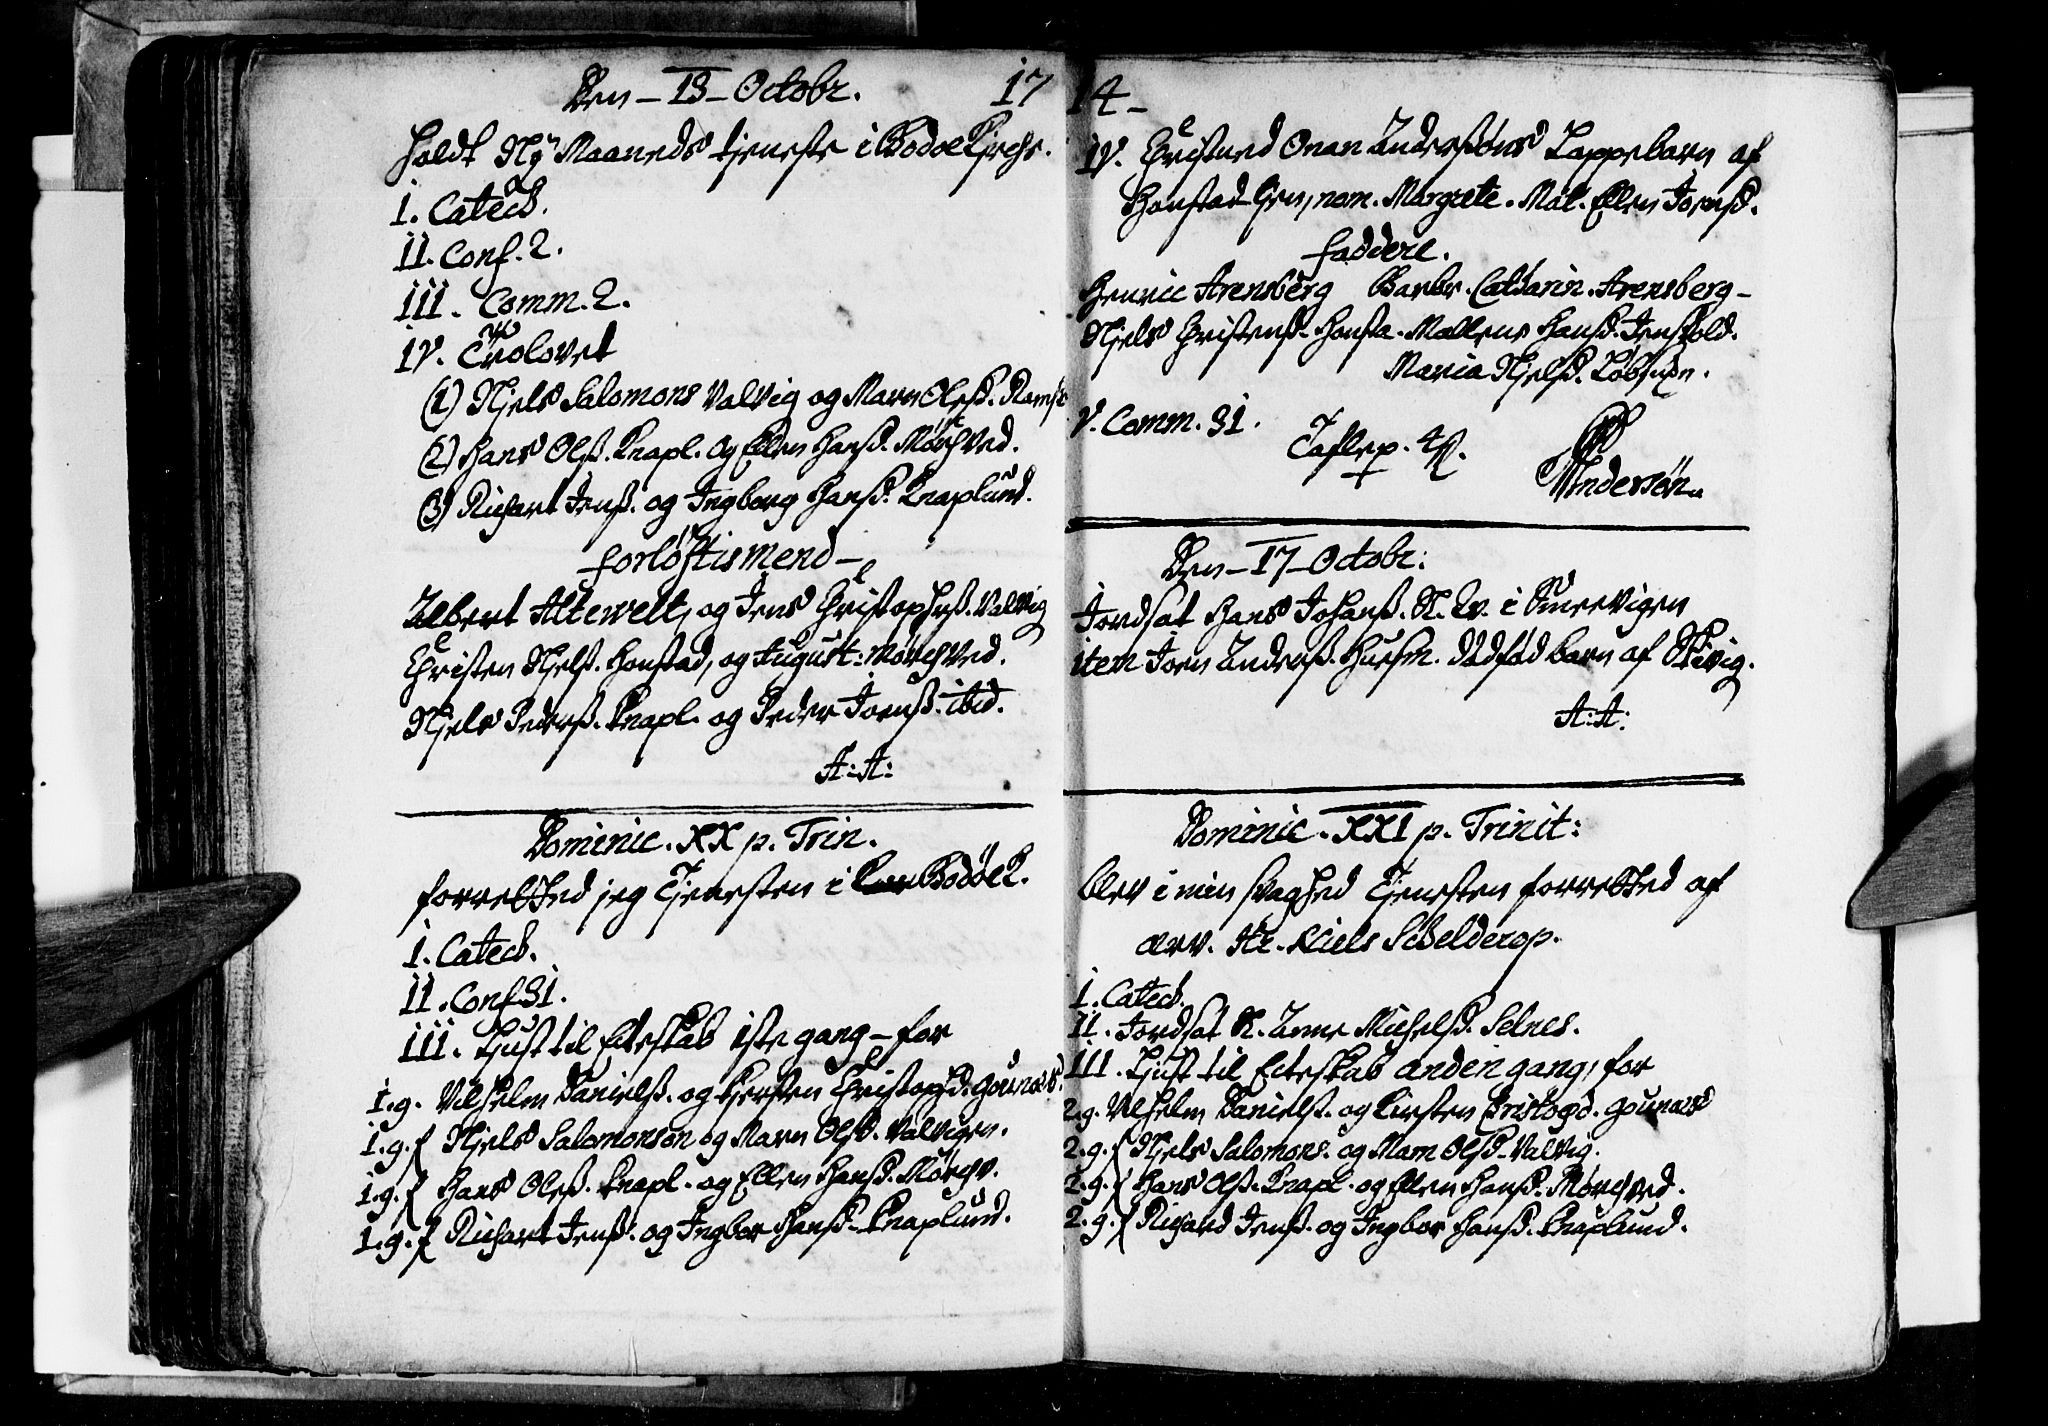 Den - 13 - Octobr. 17
holdt Ny Maaneds tjeneste i Bodøe Kirche.
I. Catech.
II. Conf. 2.
III. Comm. 2.
IV. Trolovet
(1) Njels Salomons Valvig og Marn Olsd.
(2) Hans Olß. Knapl. og Ellen Hansd. Mørchved.
(3) Richart Jenß. og Ingborg Hansd. Knaplund.
forløftismend -
Albert Altewelt, og Jens Christophß. Valvig
Christen Njelß. Honstad, og August: Mørchved.
Njels Pederß. Knapl. og Peder Joenß. ibid.
A: A:
Dominic. XX p. Trin.
forretted jeg Tjenesten i Bodøe K.
I. Catech.
II. Conf. 31.
III. Liust til Ecteskab 1ste gang - for
1. g. Vilhelm Danielß. og Kjersten Christophd. Gounæs.
1. g. f Njels Salomonson og Marn Olsd. Valvigen.
1. g. f Hans Oleß. Knapl. og Ellen Hansd. Mørchv.
1. g. f Richart Jenß. og Ingbor Hansd. Knaplund.
14 -
IV. Christned Onan Andersøns Lappebarn af
Honstad Gru, nom. Margrete. Mat. Ellen Joensd.
faddere.
Henric Arensberg Barbr. Catharin. Arensberg -
Njels Christenß. Honsta. Mallene Hansd. Jensvold.
Maria Njelsd. Løbs
V. Comm. 31. Taflep. 4
Andersøn.
Den - 17 - Octobr:
Jordsat Hans Johanß. N. Qv. i Sneevigen
item Joen Anderß. Huusm. dødfød barn af Skivig.
A: A:
Dominic. XXI p. Trinit:
blev i min svaghed Tjenesten forretted af
ærv. Hr. Niels Schelderop.
I. Catech.
II. Jordsat K. Anne Michelsd. Selnes.
III. Liust til Ecteskab anden gang, for
2. g. Vilhelm Danielß. og Kirsten Cristopd. Gounæs
2. g. f Njels Salomons. og Marn Olsd. Valvig.
2. g. f Hans Olß. Knapl. og Ellen Hansd. Mørchved.
2. g. f Richard Jenß. og Ingbor Hansd. Knaplund.